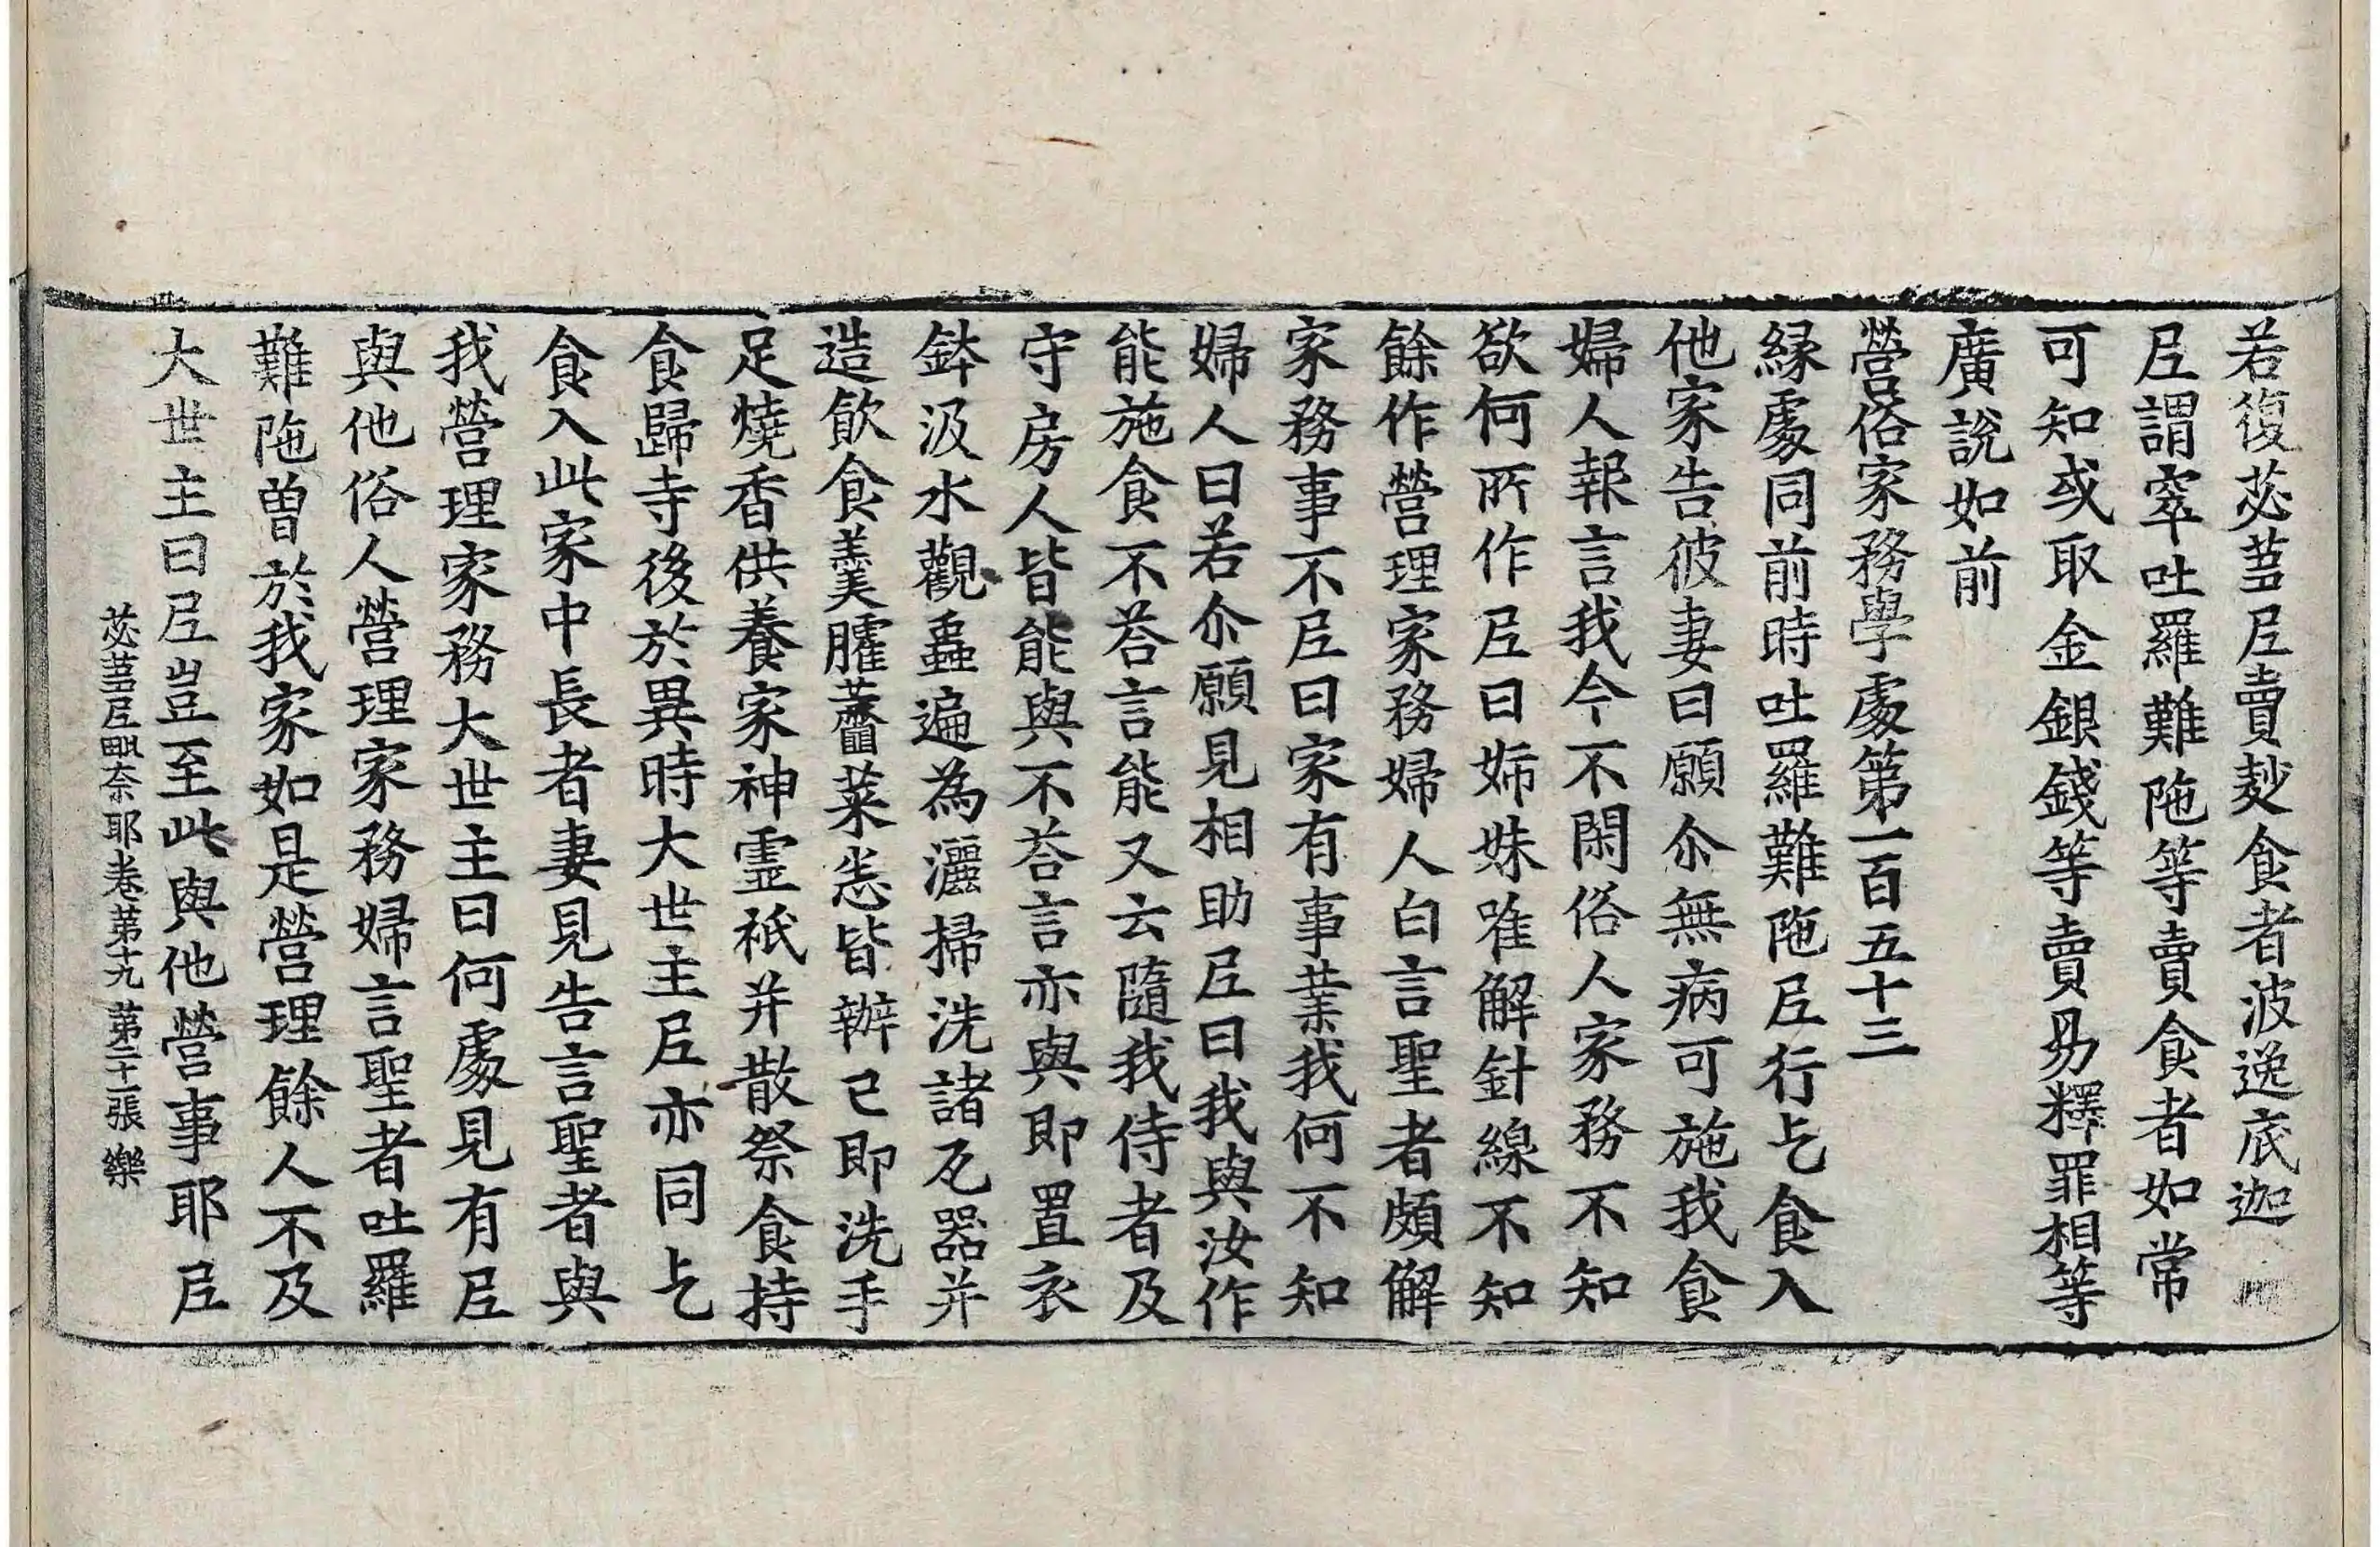 若復苾蒭尼賣麨食者波逸底迦
尼謂窣吐羅難陁等賣食者如常
可知或取金銀錢等賣易釋罪相等
廣說如前
營俗家務學處第一百五十三
緣處同前時吐羅難陁尼行乞食入
他家告彼妻曰願尒無病可施我食
婦人報言我今不閑俗人家務不知
欲何所作尼曰姉妹唯解針線不知
餘作營理家務婦人白言聖者頗解
家務事不尼曰家有事業我何不知
婦人曰若尒願見相助尼曰我與汝作
能施食不荅言能又云隨我侍者及
守房人皆能與不荅言亦與即置衣
鉢汲水觀蟲遍為灑掃洗諸瓦器并
造飲食羹臛虀菜恙皆辦已即洗手
足燒香供養家神靈祇并散祭食持
食歸寺後於異時大世主尼亦同乞
食入此家中長者妻見告言聖者與
我營理家務大世主曰何處見有尼
與他俗人營理家務婦言聖者吐羅
難陁曾於我家如是營理餘人不及
大世主曰尼豈至此與他營事耶尼
苾蒭尼毗奈耶卷第十九 第二十一張 樂